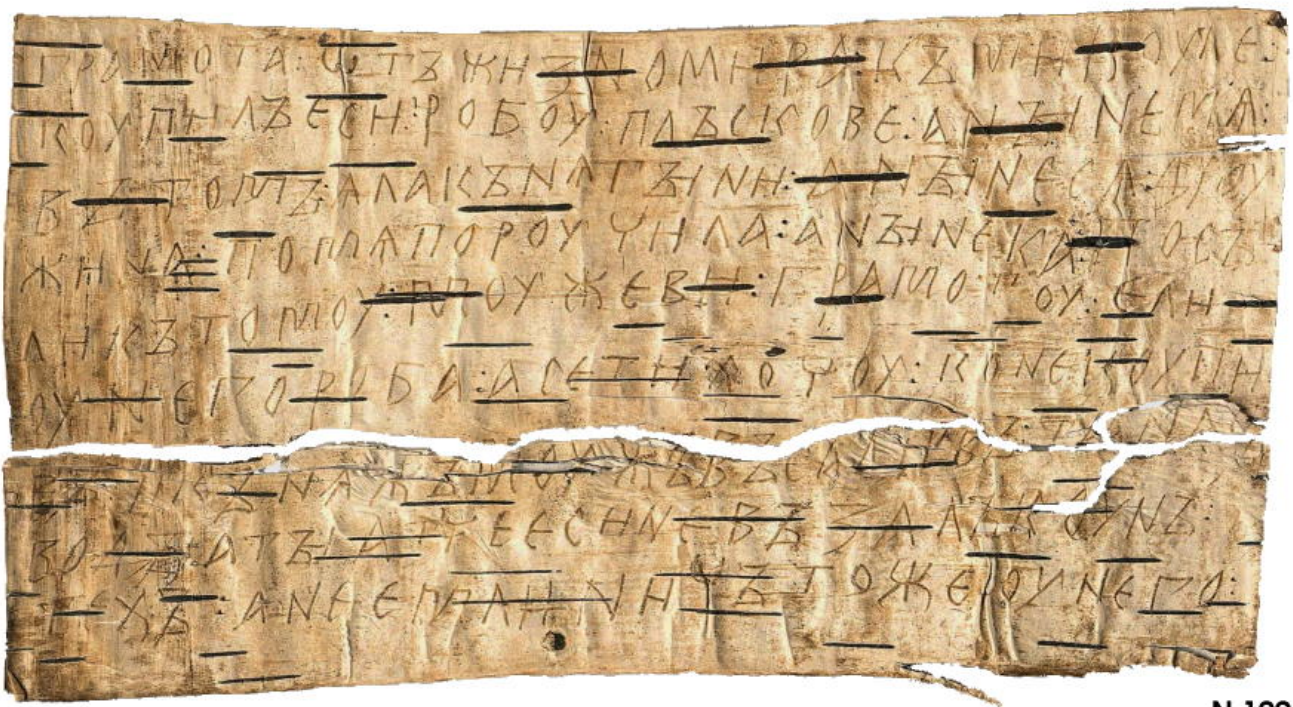 грамота : ѡтъ жизномира : къ микоуле :
коупилъ еси : робоу : плъскове : а нꙑне мѧ :
въ томъ : ѧла кънѧгꙑни : а нꙑне сѧ дроу
жина : по мѧ пороучила : а нꙑне ка : посъ
ли къ томоу : моужеви : грамотоу : е ли
оу него роба : а се ти хочоу : коне коупи
въ : и кънѧжъ моужъ въсадивъ : та на съ
водꙑ : а тꙑ атче еси не възалъ коунъ :
тѣхъ : а не емли : ничъто же оу него :